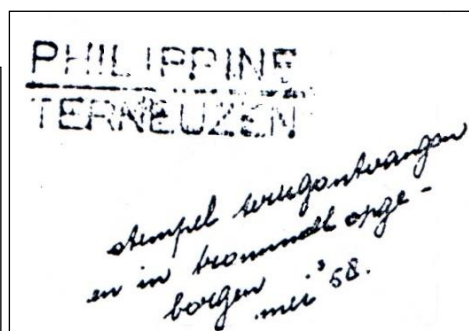 PHILIPPINE
TERNEUZEN
stempel terugontvangen
en in trommel opge-
borgen
mei '58.